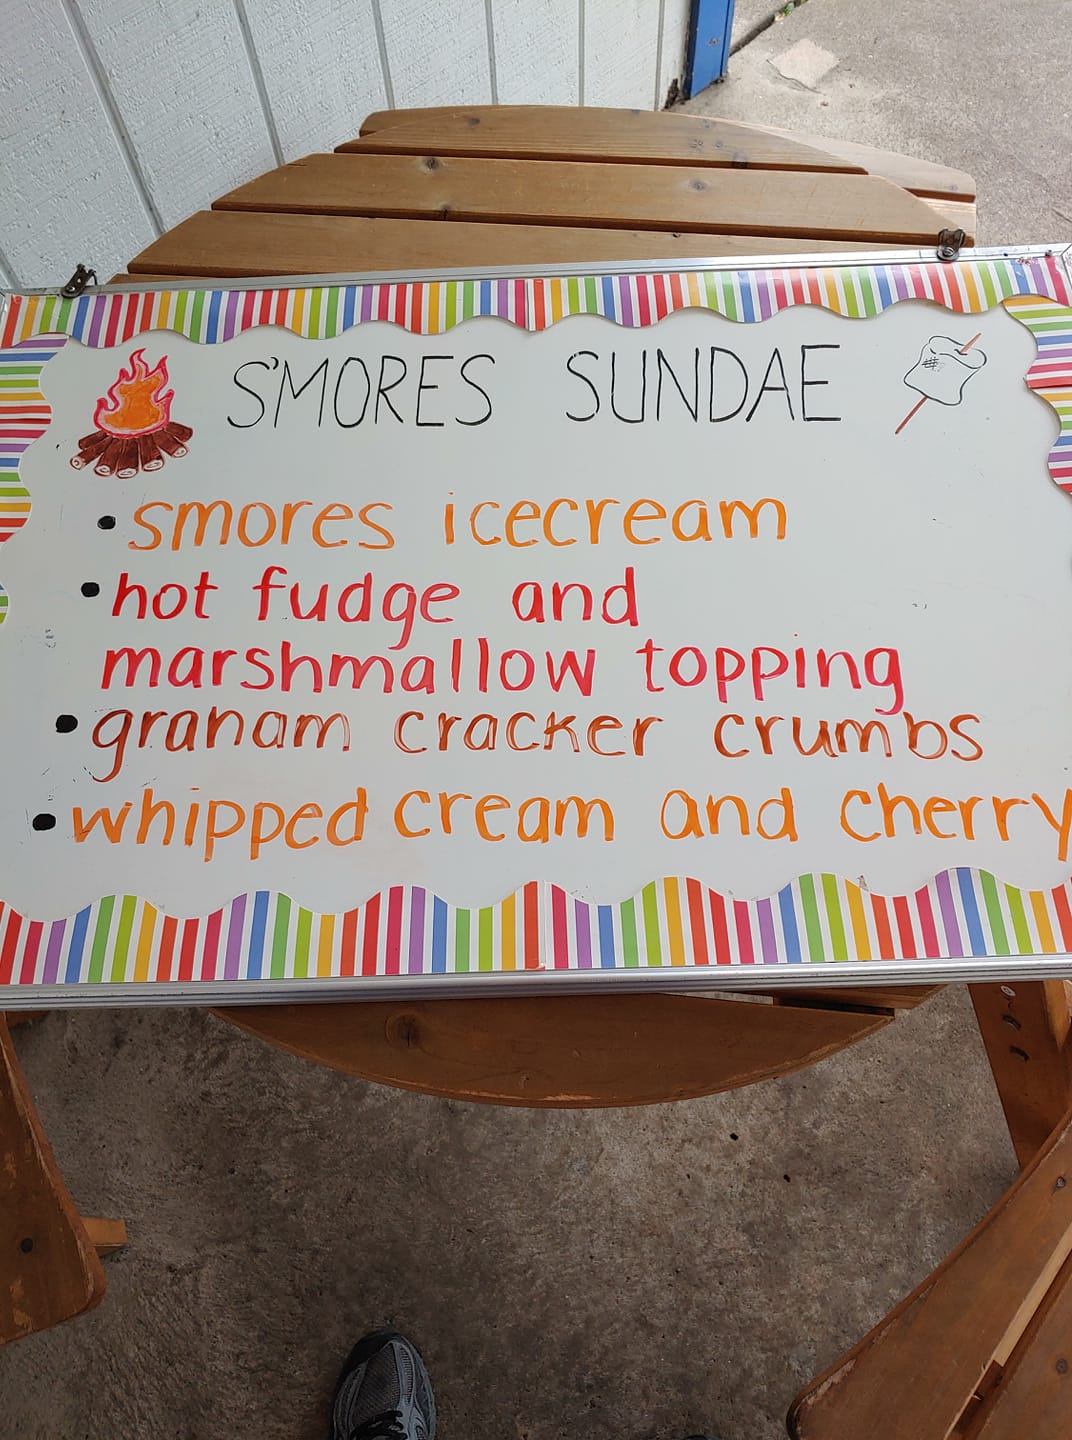 S'MORES SUNDAE
• smores icecream
• hot fudge and
marshmallow topping
• graham cracker crumbs
• whipped cream and cherry